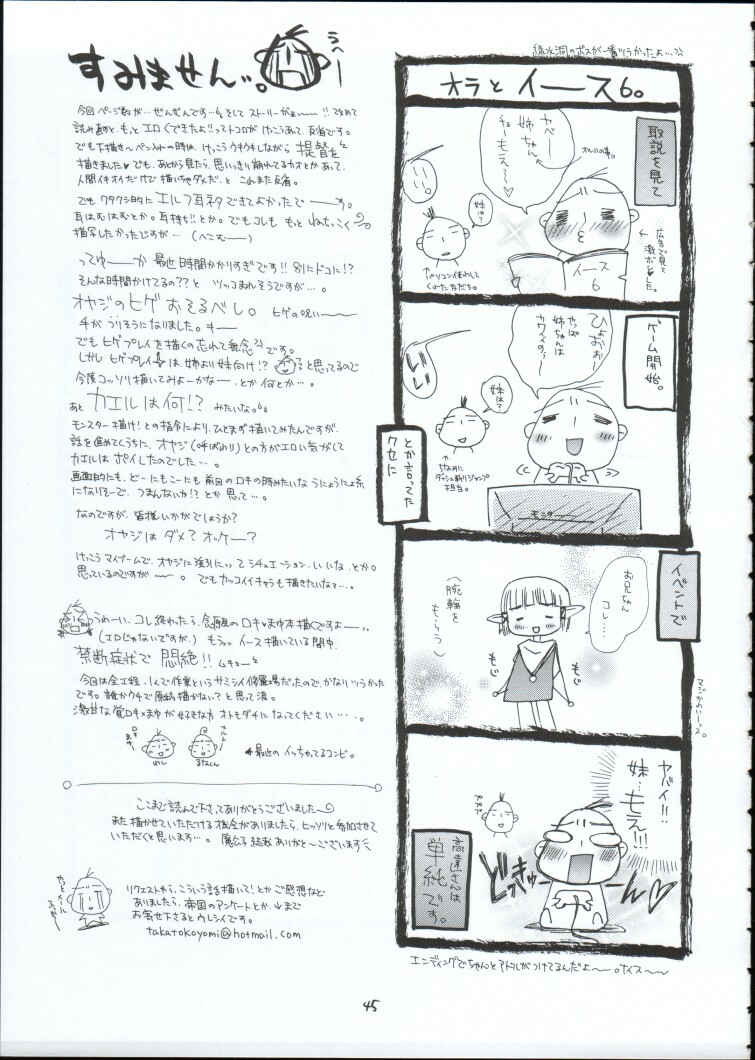 緑水洞のボスが一番ツラかったよ…
オラと イース6。
取説を見て
ヤベー
姉ちゃん
チョーもえ〜
オルハの事。
いい。
妹は?
広告で見て
激ボレした。
イース
6
↑パソコン使わして
くれた友だち。
ゲーム開始。
ひょおぉー
やっぱ
姉ちゃんは
カワエのぅ〜
いい
妹は?
ちなみに
ダッシュ斬りジャンプ
担当。
モニター
とか言ってた
クセに
イベントで
お兄ちゃん
コレ…
(腕輪を
もらう)
もじ
もじ
マジかわいーッス。
ヤバイ!!
妹…もえ!!!
どきゅーん♡
高遠さんは
単純です。
エンディングでちゃんとアドルがつけてるんだよ〜。ナイス〜
すみません…。
うへ〜
今回ページ数が…ぜんぜんです…そしてストーリーがぁー!! 改めて
読み直すと、もっとエロくできたよ!!ってトコロがけっこうあって、反省です。
でも下描き〜ペン入れの時は、けっこうウキウキしながら提督を
描きました♥でも、あとから見たら、思いっきり崩れてるカオとかあって、
人間イキオイだけで描いちゃダメだ。と これまた反省。
でもワタクシ的にエルフ耳ネタできてよかったでーーす。
耳はむはむとか。耳持ち!!とか。でもコレも もっと ねちっこく
描写したかったですが… (へこむー)
ってゆーか 最近時間かかりすぎです!! 別にドコに!?
そんな時間かけてるの?? と ツッコまれそうですが…。
オヤジのヒゲおそるべし。 ヒゲの呪い〜
手がうりそうになりました。キー
でも ヒゲプレイを描くの忘れて無念です。
しかし ヒゲプレイは、姉より妹向け!? と思ってるので
今度コッソリ描いてみよーかなー。とか何とか…。
あと カエルは何!? みたいな。
モンスター描け!との指令により、ひとまず描いてみたんですが、
話を進めてくうちに、オヤジ(呼ばわり)との方がエロい気がして
カエルはポイしたのでした…。
画面的にも、どーにもこーにも前回のロキの時みたいなうにょうにょ系
になりそーで、つまんないか!?とか思って…。
なのですが、皆様いかがでしょうか?
オヤジは ダメ? オッケー?
けっこうマイブームで、オヤジに強引にっって シチュエーション、いいな、とか。
思っているのですが〜。 でもカッコイイキャラも描きたいなぁ…。
うわーい、コレ終わたら、念願のロキ×まゆ本描くですよー…
(エロじゃないですが) もぅっ イース描いている間中、
禁断症状で 悶絶!! ムキュー
今回は全工程、1人で作業というサミシイ修羅場だったので、かなりツラかった
です。誰かウチで原稿描かない?と思って涙。
激甘な覚ロキ×まゆが好きな方 オトモダチになってください…。
←最近の イッちゃてるコンビ。
ここまで読んで下さってありがとうございました〜
また描かせていただける機会がありましたら、ヒッソリと参加させて
いただくと思います…。
リクエストやら、こういう話描いて!とか ご感想など
ありましたら、帝国のアンケートとか、↓まで
お寄せ下さるとウレシイです。
takatokoyomi@hotmail.com
45